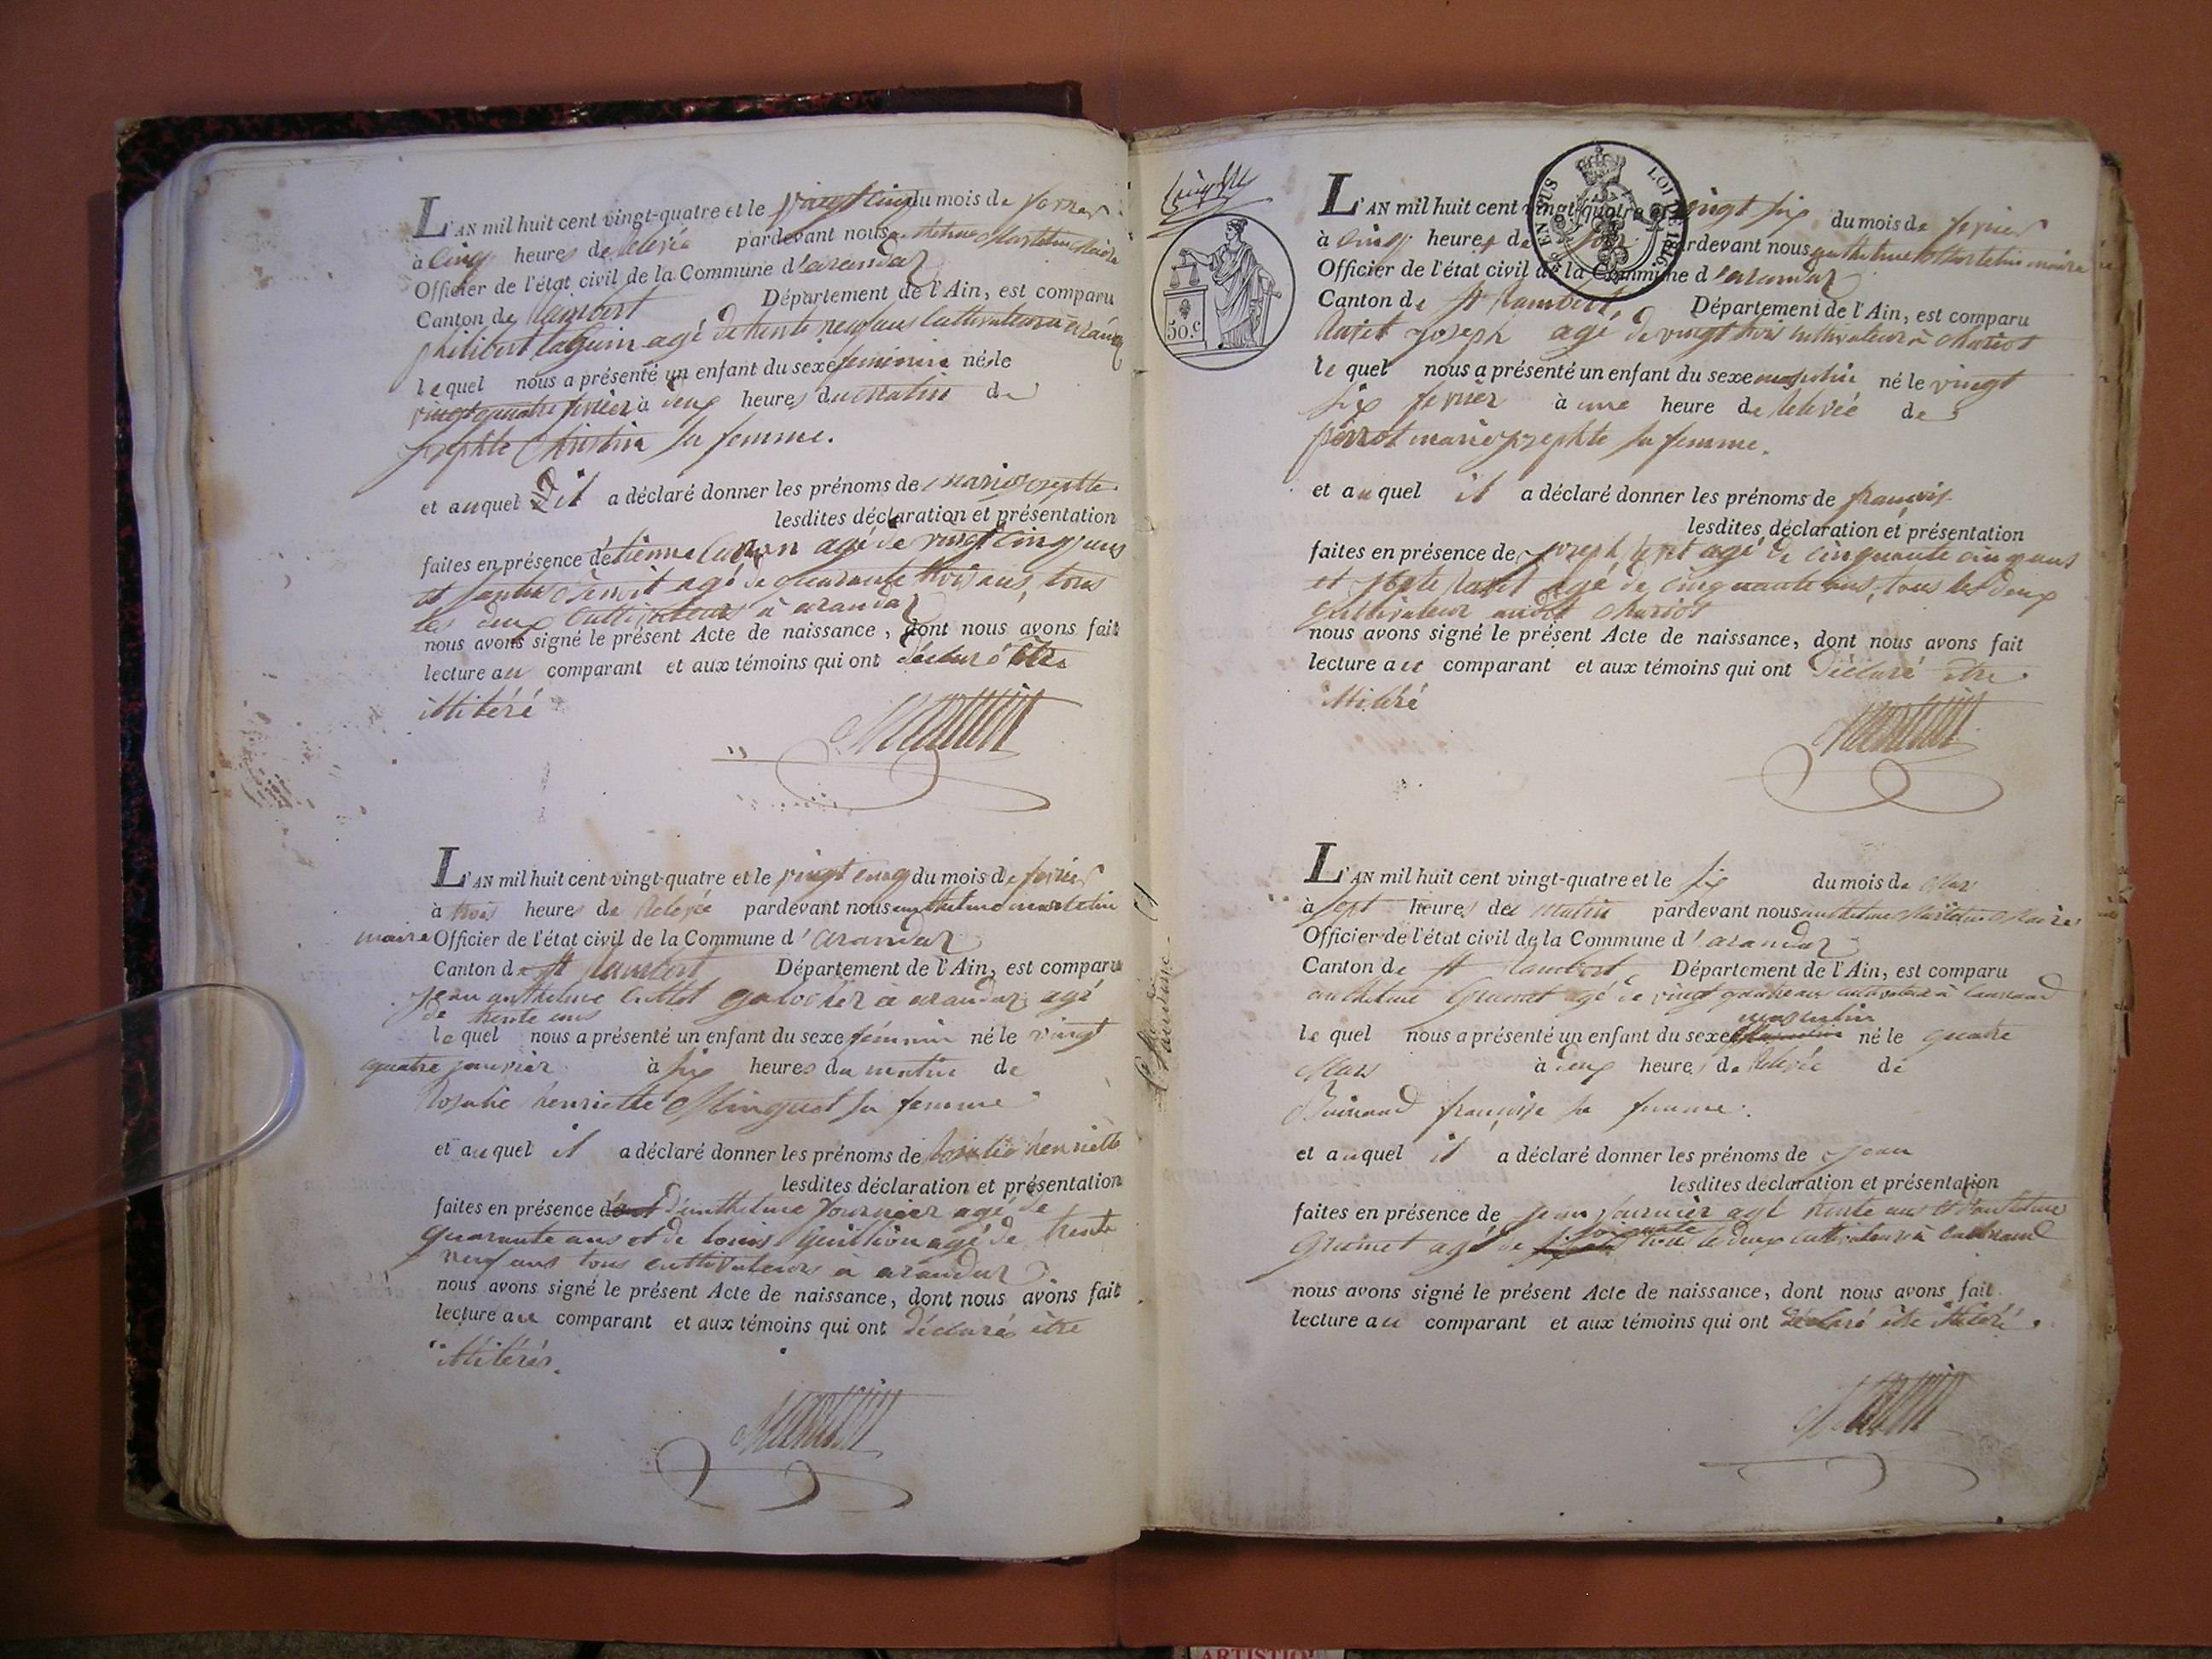 L'AN mil huit cent vingt-quatre et le vingt cinq du mois de fevrier
à cinq heures de Relevée pardevant nous anthelme Martelin Maire
Officier de l'état civil de la Commune d'arandaz
Canton de Rambert Département de l'Ain, est comparu
philibert agé de trente neuf ans Cultivateur à
le quel nous a présenté un enfant du sexe feminin né le
vingt quatre fevrier à deux heures du Matin de
josephte Christin sa femme.
et auquel il a déclaré donner les prénoms de marie josephte
lesdites déclaration et présentation
faites en présence d'etienne agé de vingt cinq ans
et benoit agé de quarante trois ans, tous
les deux cultivateurs à arandaz
nous avons signé le présent Acte de naissance, dont nous avons fait
lecture au comparant et aux témoins qui ont déclaré être
illitéré
L'AN mil huit cent vingt-quatre et le vingt cinq du mois de fevrier
à trois heures de Relevée pardevant nous anthelme martelin
maire Officier de l'état civil de la Commune d'arandaz
Canton de st Rambert Département de l'Ain, est comparu
jean anthelme galocher à arandaz agé
de trente ans
le quel nous a présenté un enfant du sexe féminin né le vingt
quatre janvier à six heures du matin de
Rosalie henriette Minguet sa femme
et auquel il a déclaré donner les prénoms de Rosalie henriette
lesdites déclaration et présentation
faites en présence d'anthelme Journier agé de
quarante ans et de Louis agé de trente
neuf ans tous cultivateurs à arandaz
nous avons signé le présent Acte de naissance, dont nous avons fait
lecture au comparant et aux témoins qui ont déclarés être
illitérés.
L'AN mil huit cent vingt-quatre et vingt six du mois de fevrier
à cinq heures de pardevant nous anthelme Martelin maire
Officier de l'état civil de la Commune d'arandaz
Canton de st Rambert, Département de l'Ain, est comparu
joseph agé de vingt trois cultivateur à
le quel nous a présenté un enfant du sexe masculin né le vingt
six fevrier à une heure de Relevée de
perrot marie josephte sa femme.
et auquel il a déclaré donner les prénoms de françois
lesdites déclaration et présentation
faites en présence de joseph agé de cinquante cinq ans
et agé de cinquante ans, tous les deux
cultivateur
nous avons signé le présent Acte de naissance, dont nous avons fait
lecture au comparant et aux témoins qui ont déclaré être
illitéré
EN SUS LOI DE 1816
50.c
L'AN mil huit cent vingt-quatre et le six du mois de Mars
à sept heures du matin pardevant nous anthelme Martelin Maire
Officier de l'état civil de la Commune d'arandaz
Canton de st Rambert, Département de l'Ain, est comparu
anthelme Grumet agé de vingt quatre ans cultivateur à
masculin
le quel nous a présenté un enfant du sexe né le quatre
Mars à deux heures de Relevée de
françoise sa femme.
et auquel il a déclaré donner les prénoms de jean
lesdites déclaration et présentation
faites en présence de jean fournier agé trente ans et d'anthelme
Grumet agé de soixante tous le deux cultivateurs à
nous avons signé le présent Acte de naissance, dont nous avons fait
lecture au comparant et aux témoins qui ont déclaré être illitéré.